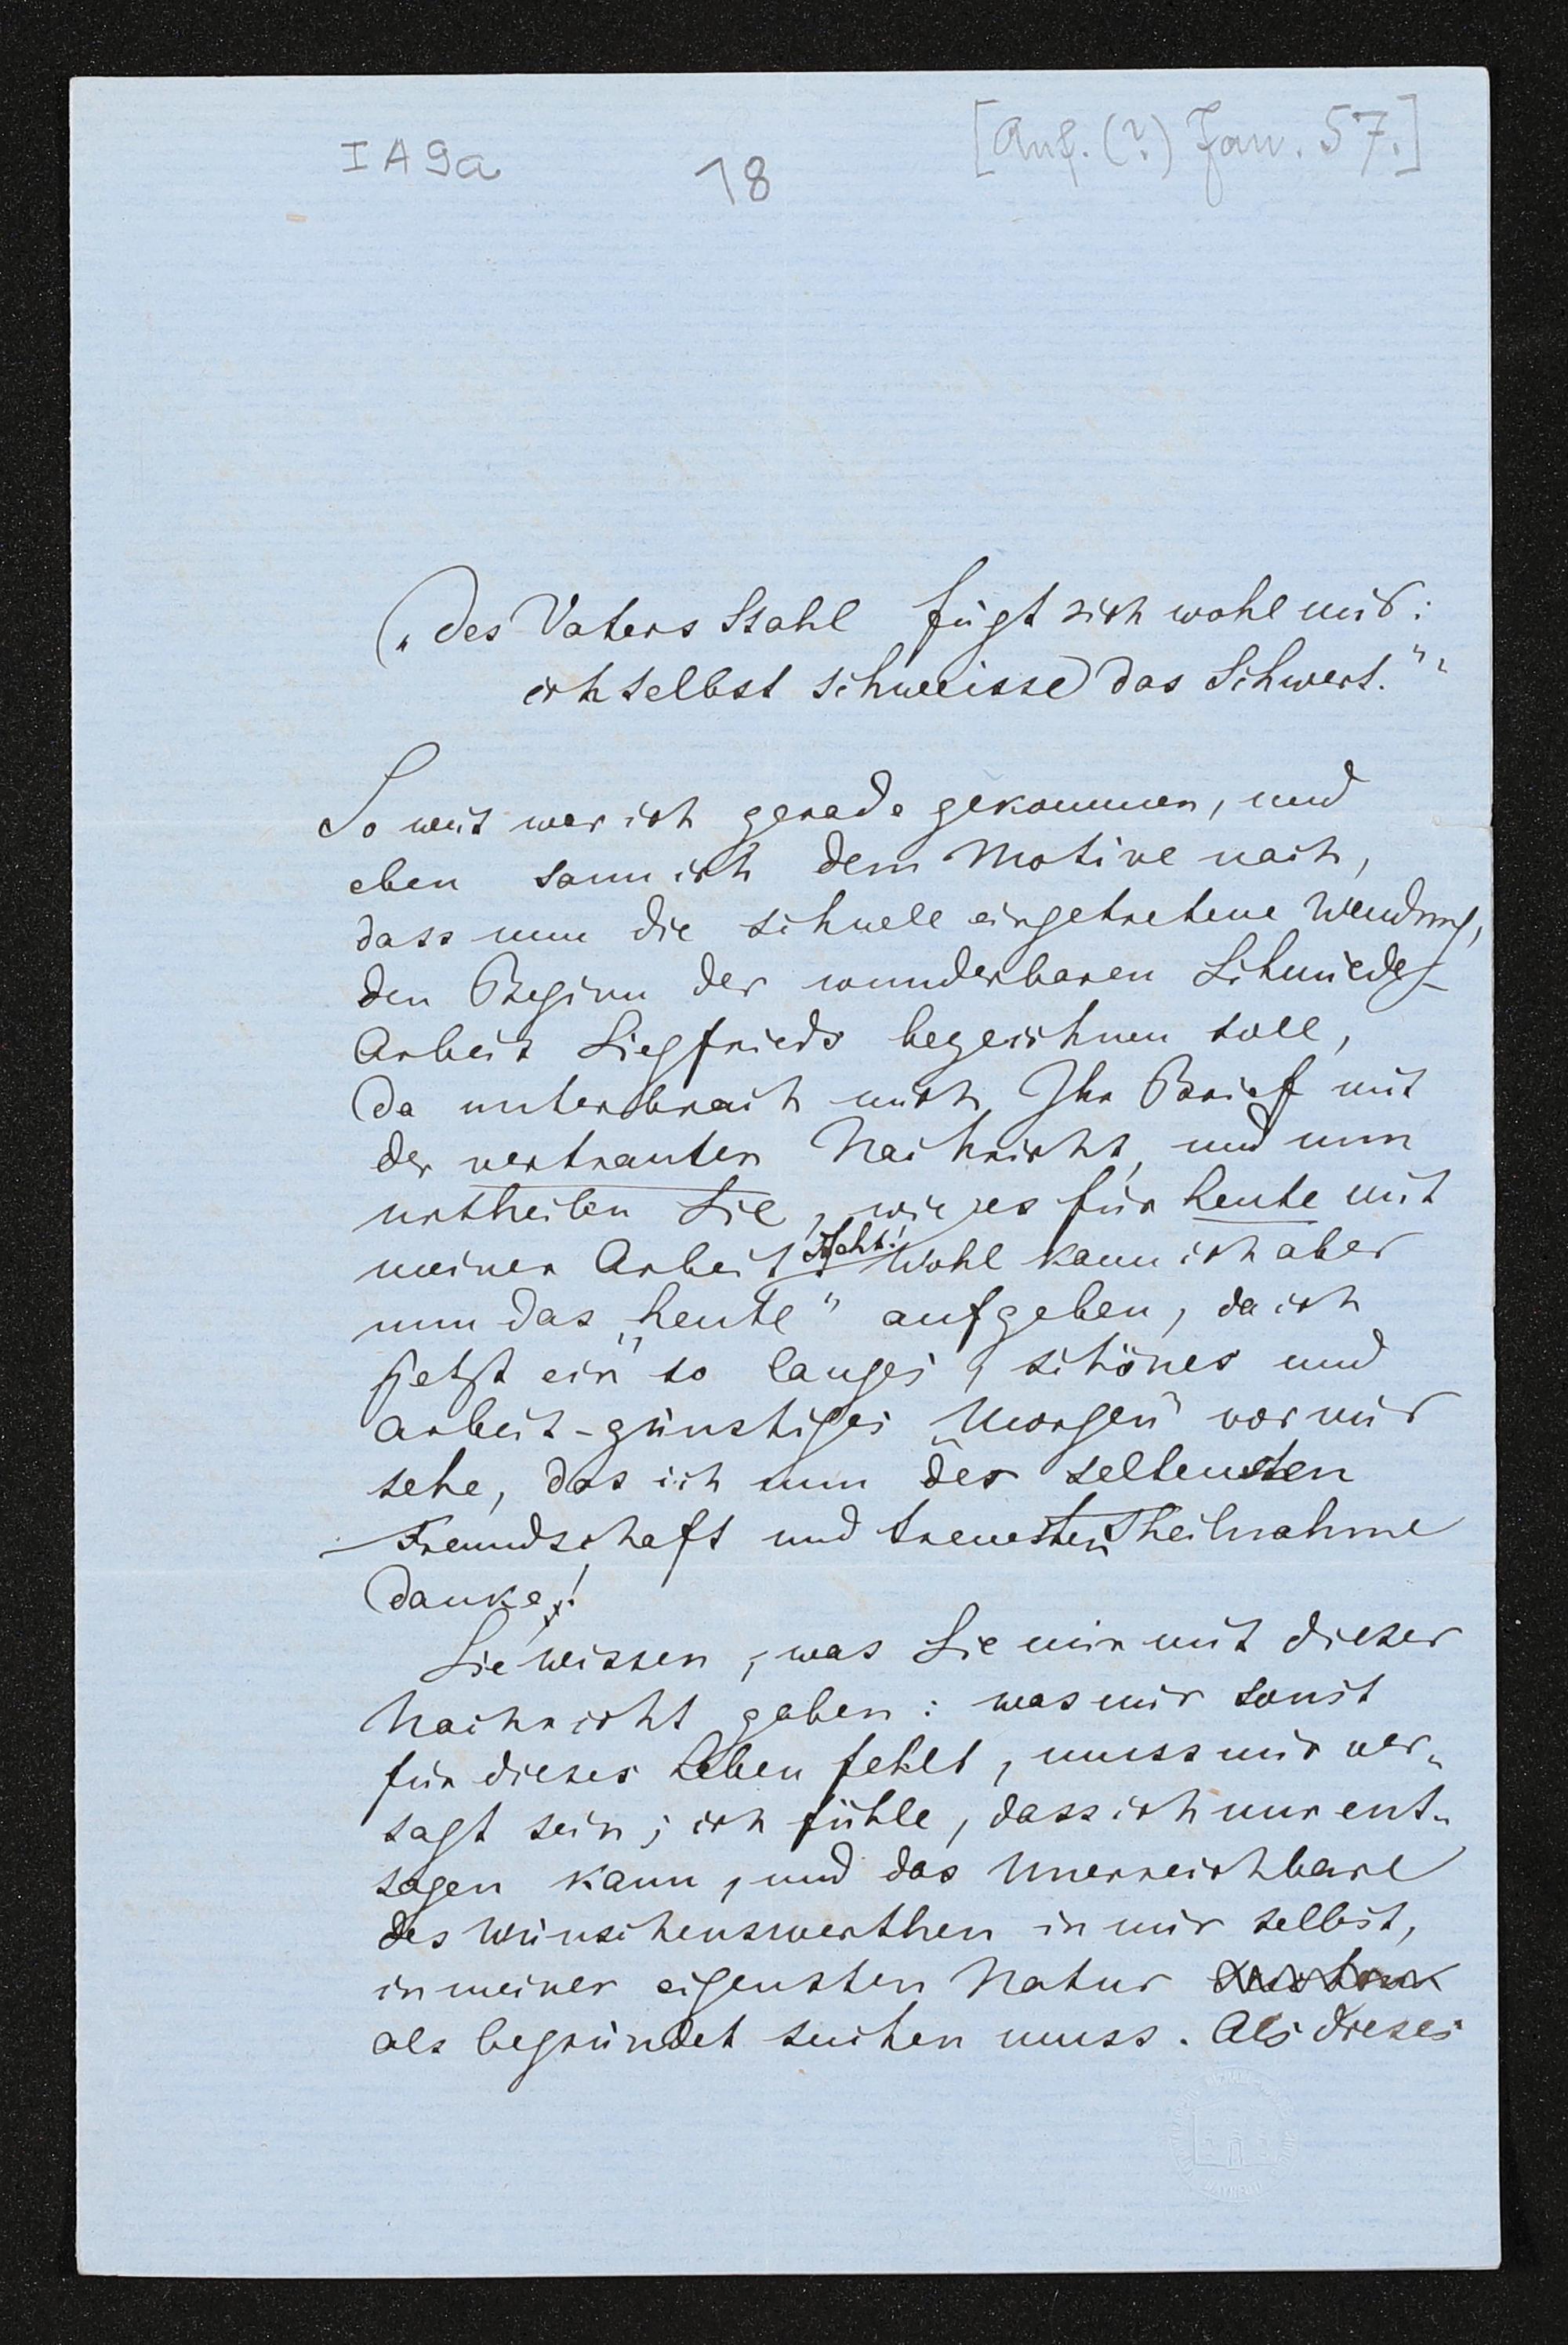 IA9a
18
[Anf. (?) Jan. 57.]
„des Vaters Stahl fügt sich wohl mir:
ich selbst schweisse das Schwert."
So weit war ich gerade gekommen, und
eben sann ich dem Motive nach,
dass nun die schnell eingetretene Wendung,
den Beginn der wunderbaren Schmiede-
Arbeit Siegfrieds bezeichnen soll,
da unterbrach mich Ihr Brief mit
der vertrauten Nachricht, und nun
urtheilen Sie, wie es für heute mit
meiner Arbeit steht! Wohl kann ich aber
nun das „heute" aufgeben, da ich
jetzt ein so langes, schönes und
arbeit-günstiges „Morgen" vor mir
sehe, das ich nun der seltensten
Freundschaft und treuesten Theilnahme
danke!
Sie wissen, was Sie mir mit dieser
Nachricht gaben: was mir sonst
für dieses Leben fehlt, muss mir ver-
sagt sein; ich fühle, dass ich nur ent-
sagen kann, und das Unerreichbare
des Wünschenswerthen in mir selbst,
in meiner eigensten Natur
als begründet suchen muss. Als dieses